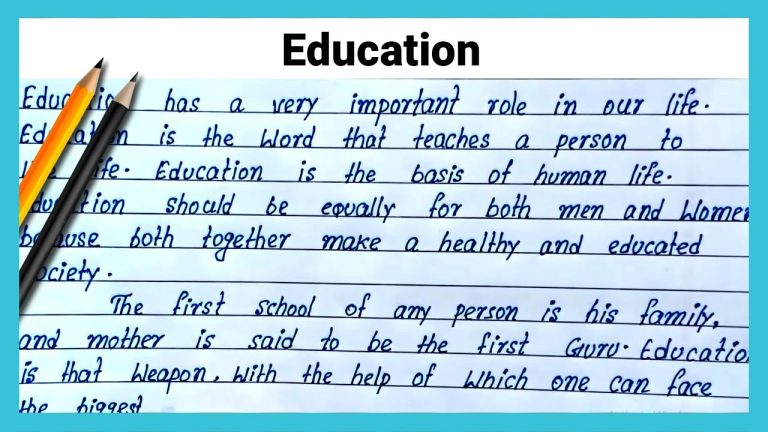 Education
Education has a very important role in our life.
Education is the Word that teaches a person to
life. Education is the basis of human life.
Education should be equally for both men and Women
because both together make a healthy and educated
society.
The first school of any person is his family,
and mother is said to be the first Guru. Educatio
is that Weapon, With the help of Which one can face
the biggest